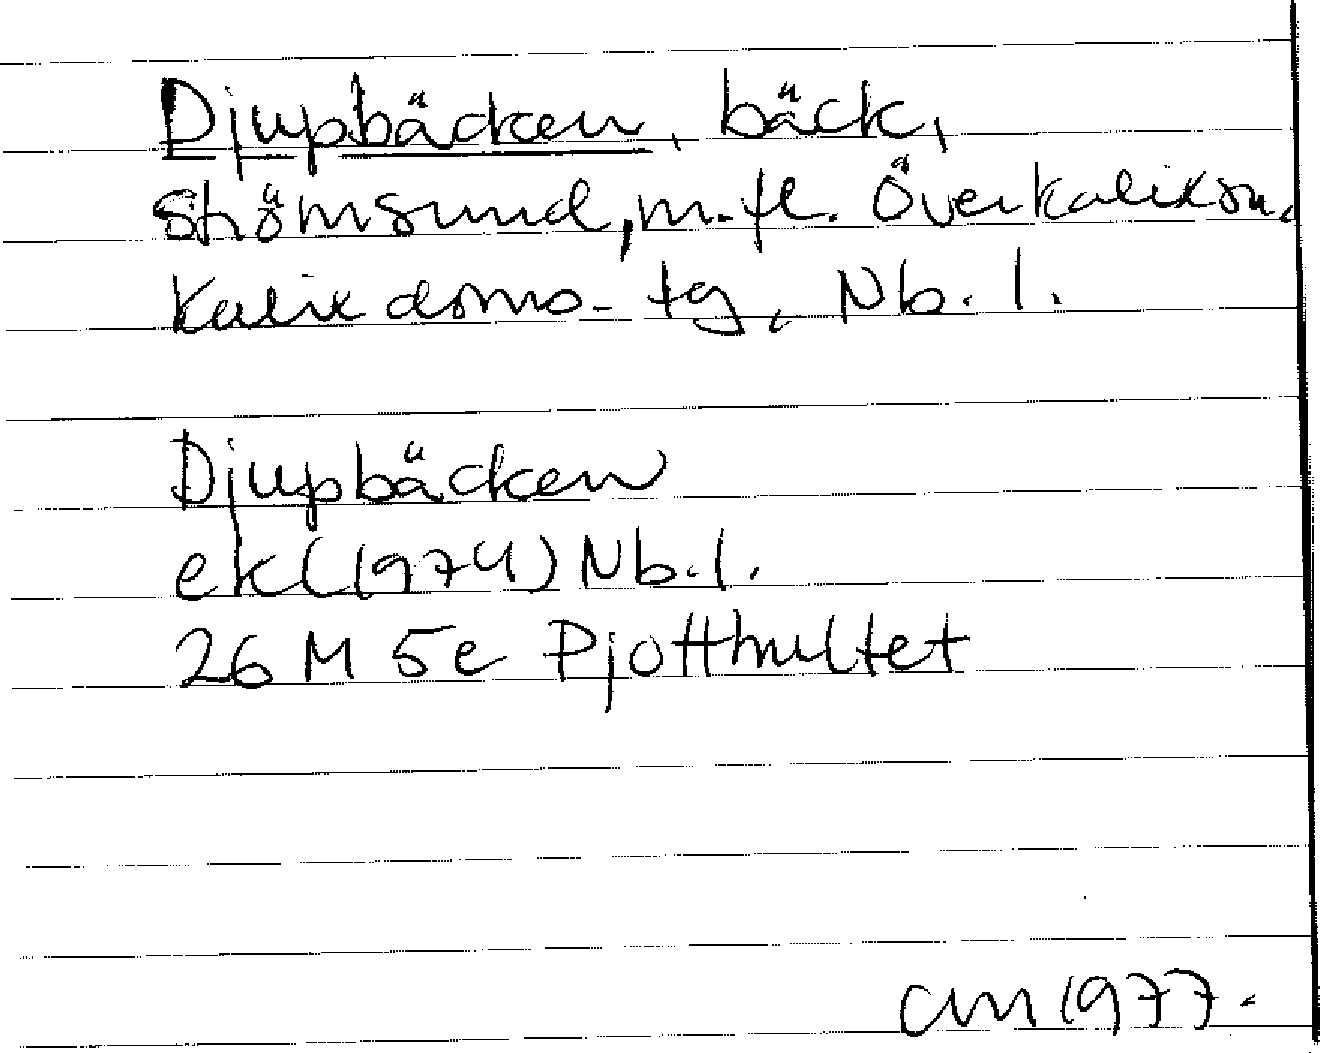 Djupbäcken, bäck,
Strömsund, m.fl. Överkalix sn,
Kalix doms- tg, Nb. l.
Djupbäcken
ek (1974) Nb. l.
26 M 5e Pjotthultet
am 1977.